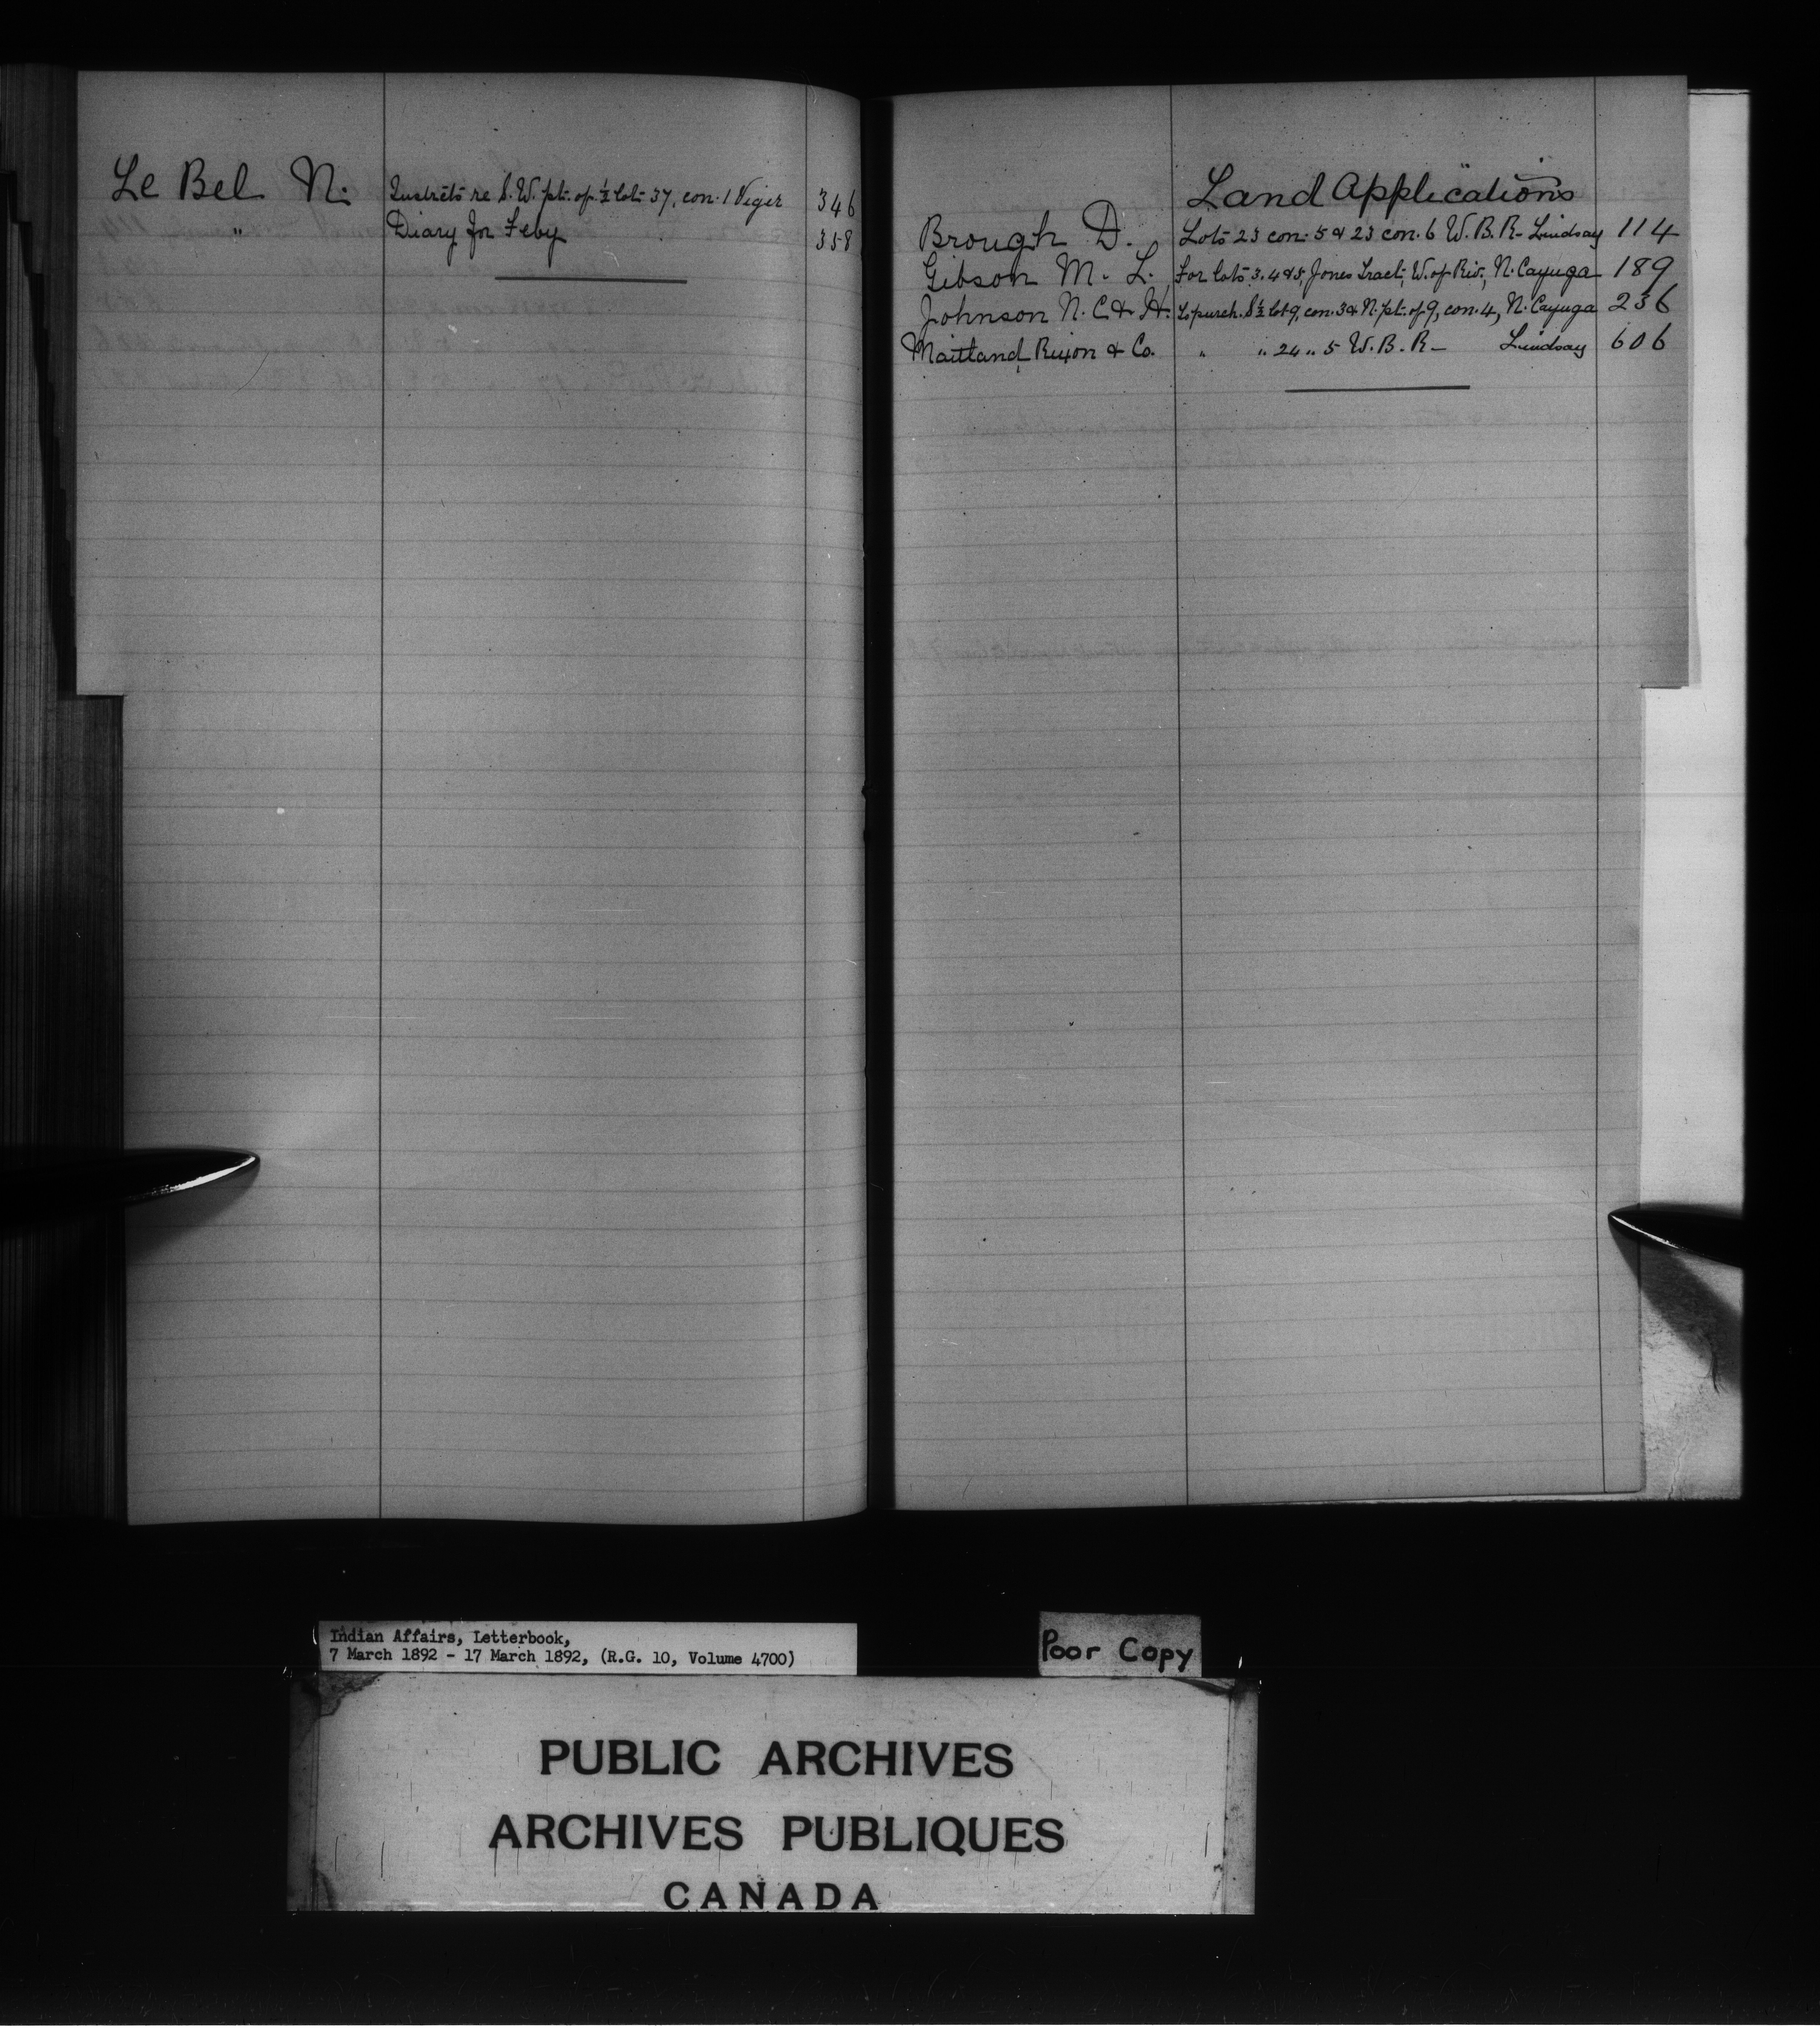 Le Bel N. Instrcts re S.W. pt. of ½ lot 37, con. 1 Viger 346
" Diary for Feby 358
Land Applications
Brough D. Lots 23 con. 5 & 23 con. 6 W.B.R. Lindsay 114
Gibson M. L. For lots 3. 4 & 5, Jones Tract, W. of Riv., N. Cayuga 189
Johnson N. C. & H. To purch. S½ lot 9, con. 3 & N. pt. of 9, con. 4, N. Cayuga 236
Maitland, Rixon & Co. " " 24 " 5 W.B.R. Lindsay 606
Indian Affairs, Letterbook,
7 March 1892 - 17 March 1892, (R.G. 10, Volume 4700)
Poor Copy
PUBLIC ARCHIVES
ARCHIVES PUBLIQUES
CANADA